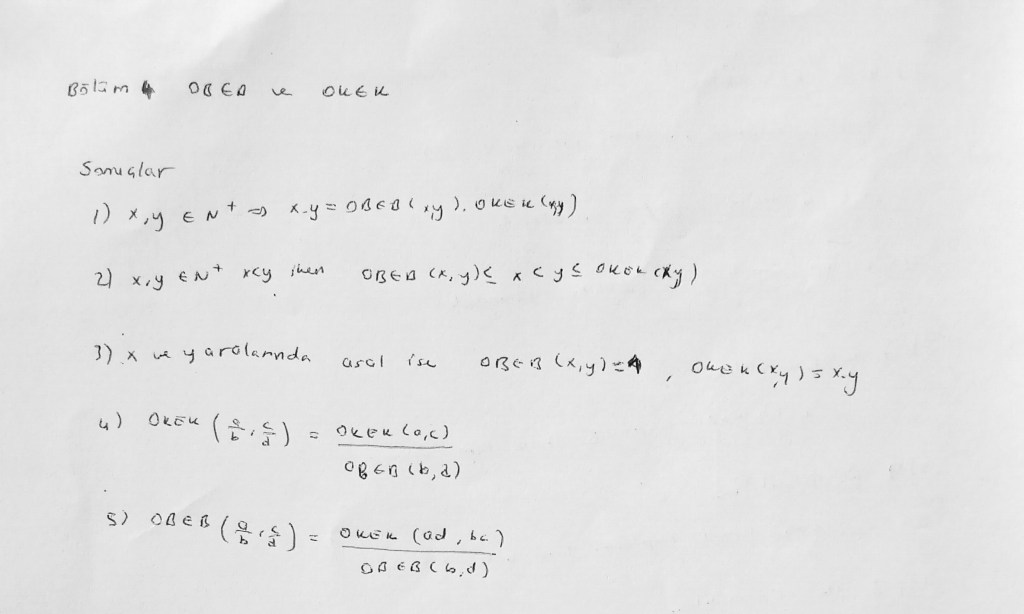 Bölüm 4 OBEB ve OKEK
Sonuçlar
1) x,y ∈ N⁺ ⇒ x.y = OBEB(x,y). OKEK(x,y)
2) x,y ∈ N⁺ x<y iken OBEB (x,y) ≤ x < y ≤ OKEK (x,y)
3) x ve y aralarında asal ise OBEB (x,y) = 1, OKEK (x,y) = x.y
4) OKEK (a/b, c/d) = OKEK (a,c) / OBEB (b,d)
5) OBEB (a/b, c/d) = OKEK (ad, bc) / OBEB (b,d)